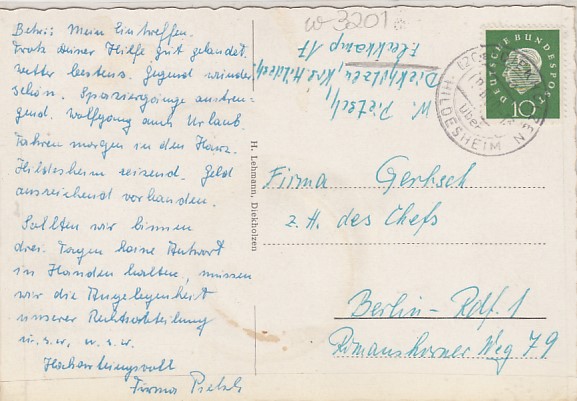 w-3201
Betr.: Mein Eintreffen.
Trotz Deiner Hilfe gut gelandet.
Wetter bestens. Gegend wunder-
schön. Spaziergänge anstren-
gend. Wolfgang auch Urlaub.
Fahren morgen in den Harz.
Hildesheim reizend. Geld
ausreichend vorhanden.
Sollten wir binnen
drei Tagen keine Antwort
in Händen halten, müssen
wir die Angelegenheit
unserer Rechtsabteilung
u.s.w. u.s.w.
Hochachtungsvoll
Firma Pietsch
H. Lehmann, Diekholzen
W. Pietsch
Diekholzen Krs. Hildesh.
17
DEUTSCHE BUNDESPOST
10
DIEKHOLZEN
über
HILDESHEIM
Firma Gerksch
z. H. des Chefs
Berlin-Rdf. 1
Romanshorner Weg 79